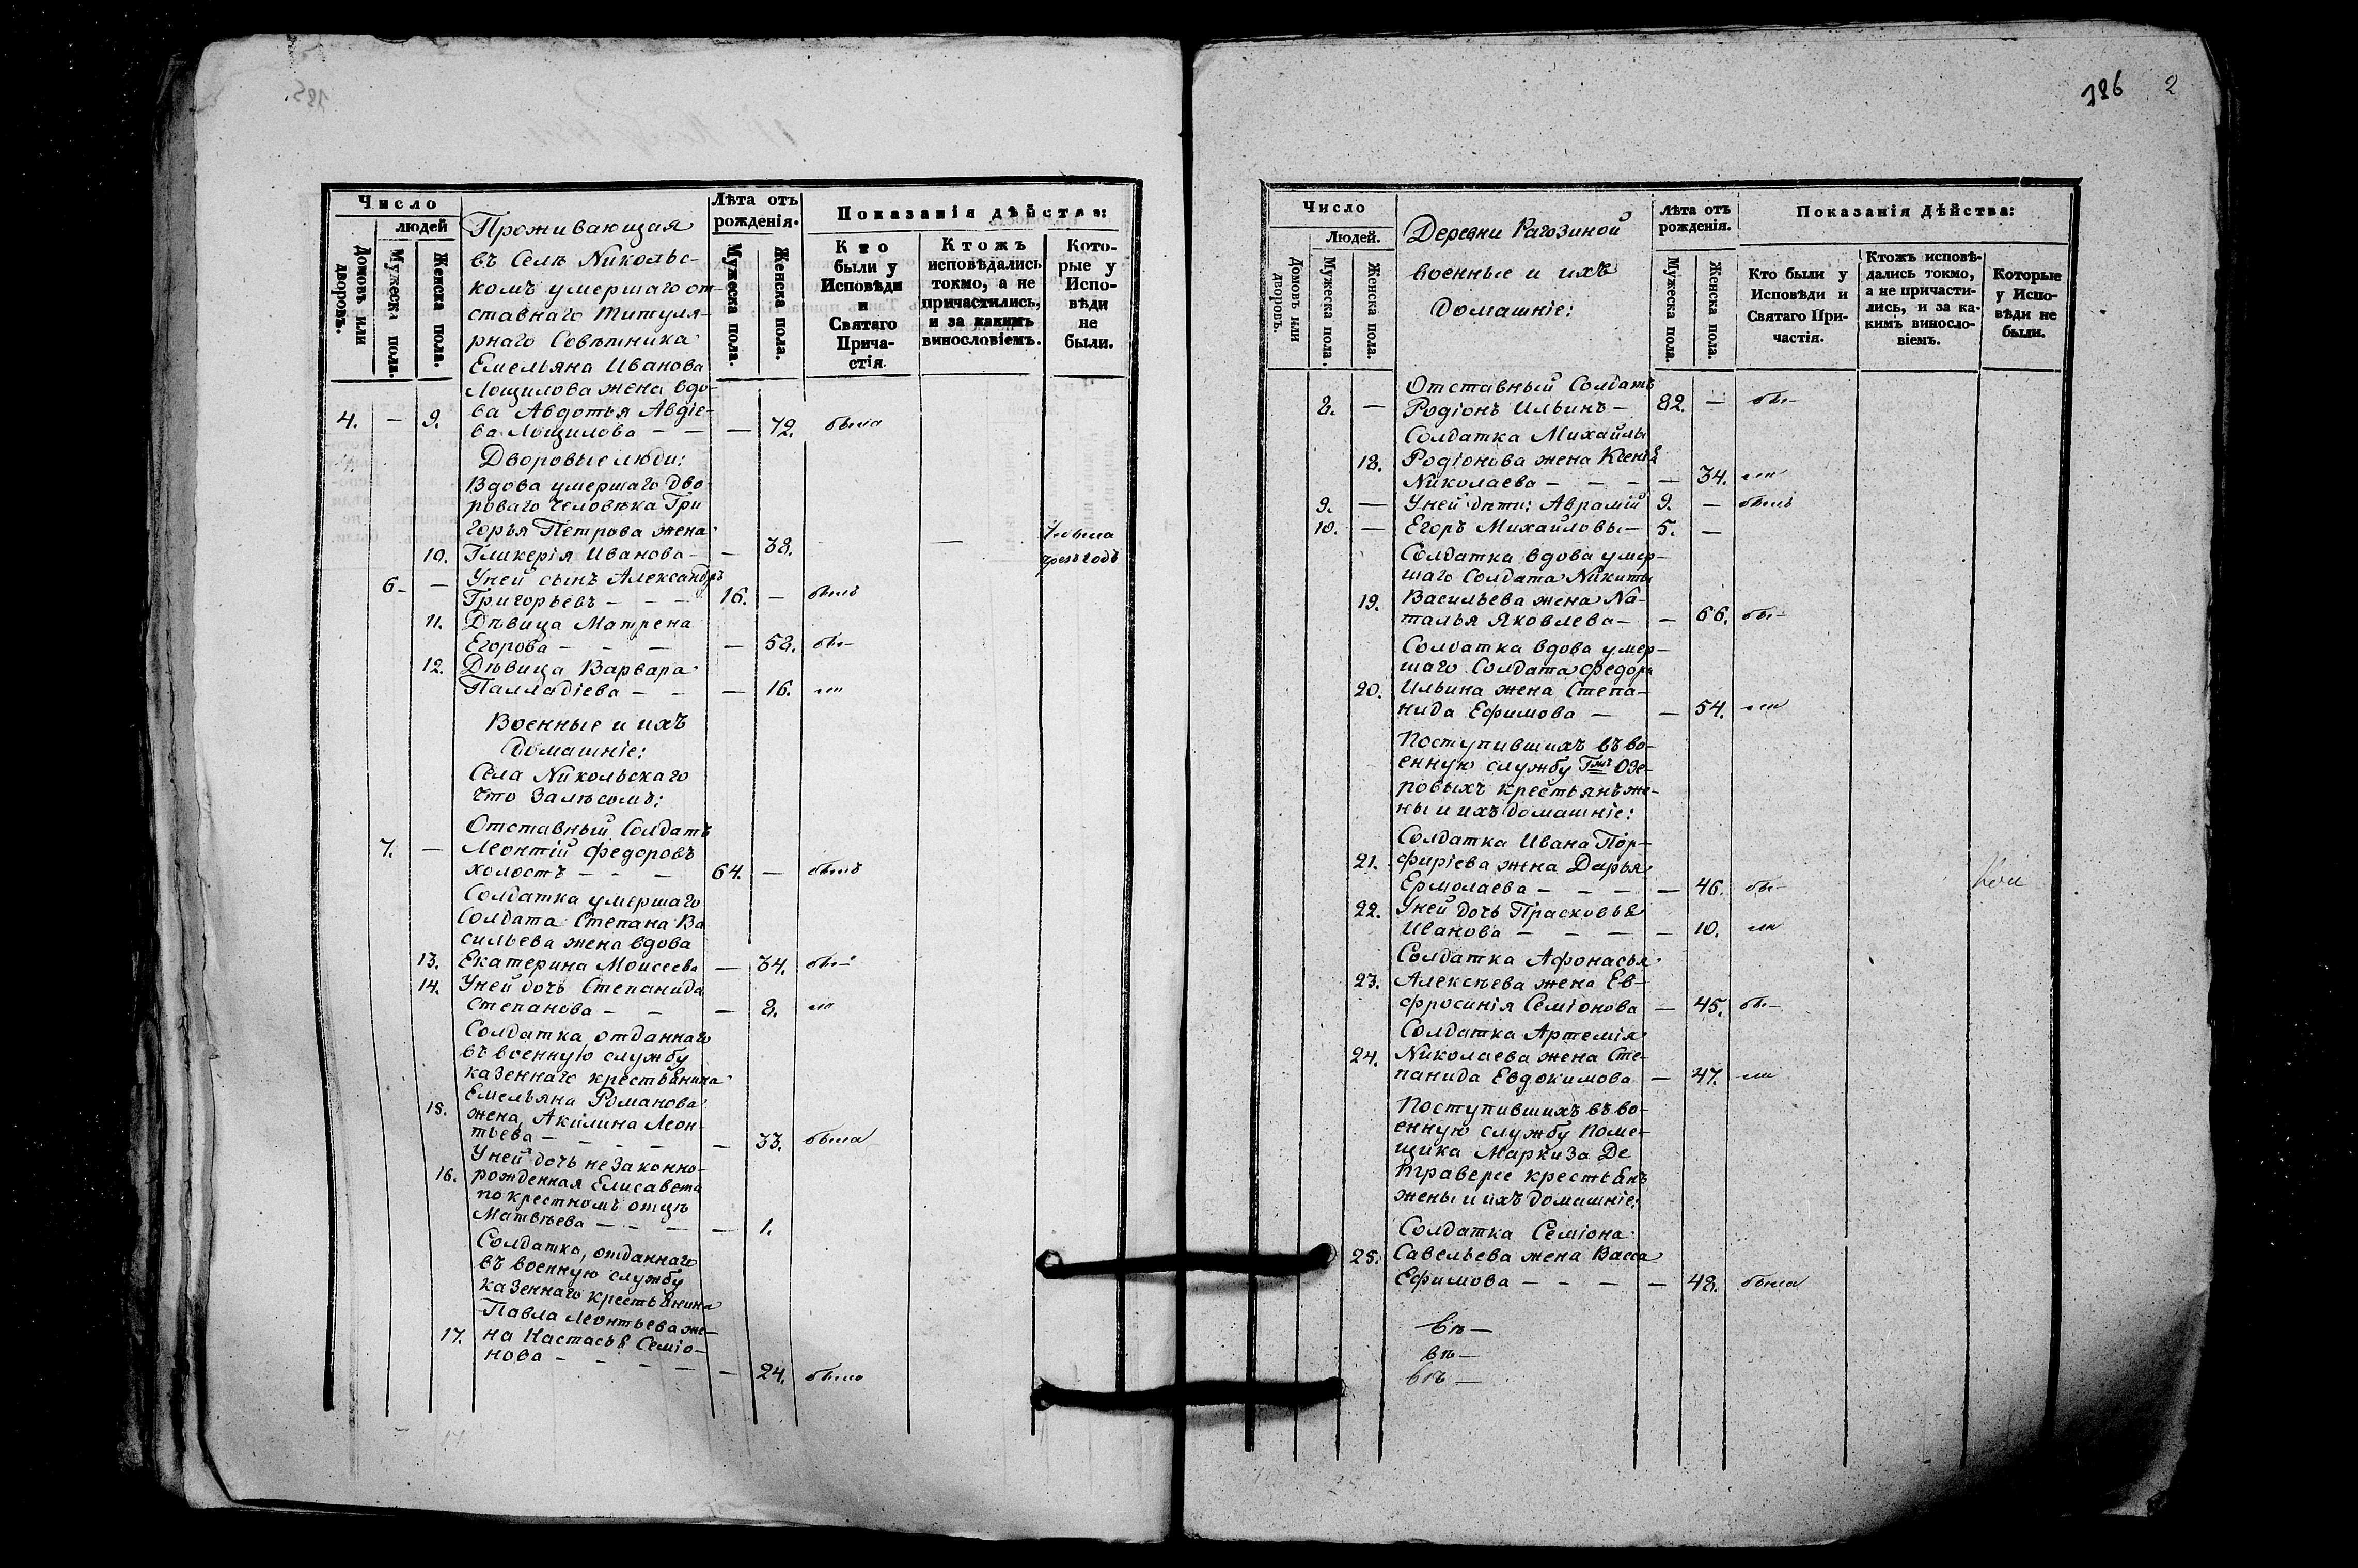 Число
людей
Домовъ или дворовъ.
Мужеска пола.
Женска пола.
Проживающая
въ Селѣ Николъс-
комъ умершаго от-
ставнаго Титуля-
рнаго Совѣтника
Емельяна Иванова
Лощилова жена вдо-
Лѣта отъ
рожденія.
Мужеска пола.
Женска пола.
Показанія дѣйства:
Кто
были у
Исповѣди
и
Святаго
Прича-
стія.
Ктожъ
исповѣдались
токмо, а не
причастились,
и за какимъ
винословіемъ.
Кото-
рые у
Испо-
вѣди
не
были.
4. — 9. ва Авдотья Авдіе-
ва Лощилова — — — 72. была
Дворовые люди:
Вдова умершаго Дво
роваго Человѣка Гри
горья Петрова жена
10. Гликерія Иванова — — 38. —
чрезъ годъ
6 — Уней сынъ Александръ
Григорьевъ — — — 16. — былъ
11. Дѣвица Матрена
Егорова — — — — 58. бы—
12. Дѣвица Варвара
Палладіева — — — 16. ла
Военные и ихъ
Домашніе:
Села Никольскаго
Что Залѣсомъ:
Отставный Солдатъ
7. — Леонтій Федоровъ
холостъ — — — 64. — былъ
Солдатка умершаго
Солдата Степана Ва
сильева жена вдова
13. Екатерина Моисеева — 34. бы—
14. Уней дочь Степанида
Степанова — — — 8. ла
Солдатка отданнаго
въ военную службу
казеннаго крестьянина
Емельяна Романова
15. жена, Акилина Леон-
тьева — — — — — 33. была
Уней дочь незаконно-
16. рожденная Елисавета
по крестномъ отцѣ
Матвѣева — — — — 1.
Солдатка, отданнаго
въ военную службу
казеннаго крестьянина
Павла Леонтьева же-
17. на Настасья Семіо-
нова — — — — — 24. была
186 2
Число
Людей.
Домовъ или дворовъ.
Мужеска пола.
Женска пола.
Деревни Рагозиной
военные и ихъ
Домашніе:
Лѣта отъ
рожденія.
Мужеска пола.
Женска пола.
Показанія Дѣйства:
Кто были у
Исповѣди и
Святаго При-
частія.
Ктожъ исповѣ-
дались токмо,
а не причасти-
лись, и за ка-
кимъ винosло-
віемъ.
Которые
у Испо-
вѣди не
были.
Отставный Солдатъ
8. — Родіонъ Ильинъ — 82. — бы—
Солдатка Михайлы
18. Родіонова жена Ксенія
Николаева — — — — 34. ла
9. — Уней дѣти: Аврамій 9. — былъ
10. — Егоръ Михайловы — 5. —
Солдатка вдова умер-
шаго Солдата Никиты
19. Васильева жена На-
талья Яковлева — — 66. бы—
Солдатка вдова умер-
шаго Солдата Федора
20. Ильина жена Степа-
нида Ефимова — — 54. ла
Поступившихъ въ во-
енную службу Гдъ Озе-
ровыхъ крестьянъ же-
ны и ихъ домашніе:
Солдатка Ивана Пор-
21. фиріева жена Дарья
Ермолаева — — — — 46. бы—
22. Уней дочь Прасковья
Иванова — — — — 10. ла
Солдатка Афонасья
23. Алексѣева жена Ев-
фросинія Семіонова — 45. бы—
Солдатка Артемія
24. Николаева жена Сте-
панида Евдокимова — 47. ла
Поступившихъ въ во-
енную службу Поме-
щика Маркиза Де
Траверсе крестьянъ
жены и ихъ домашніе:
Солдатка Семіона
25. Савельева жена Васса
Ефимова — — — — 48. была